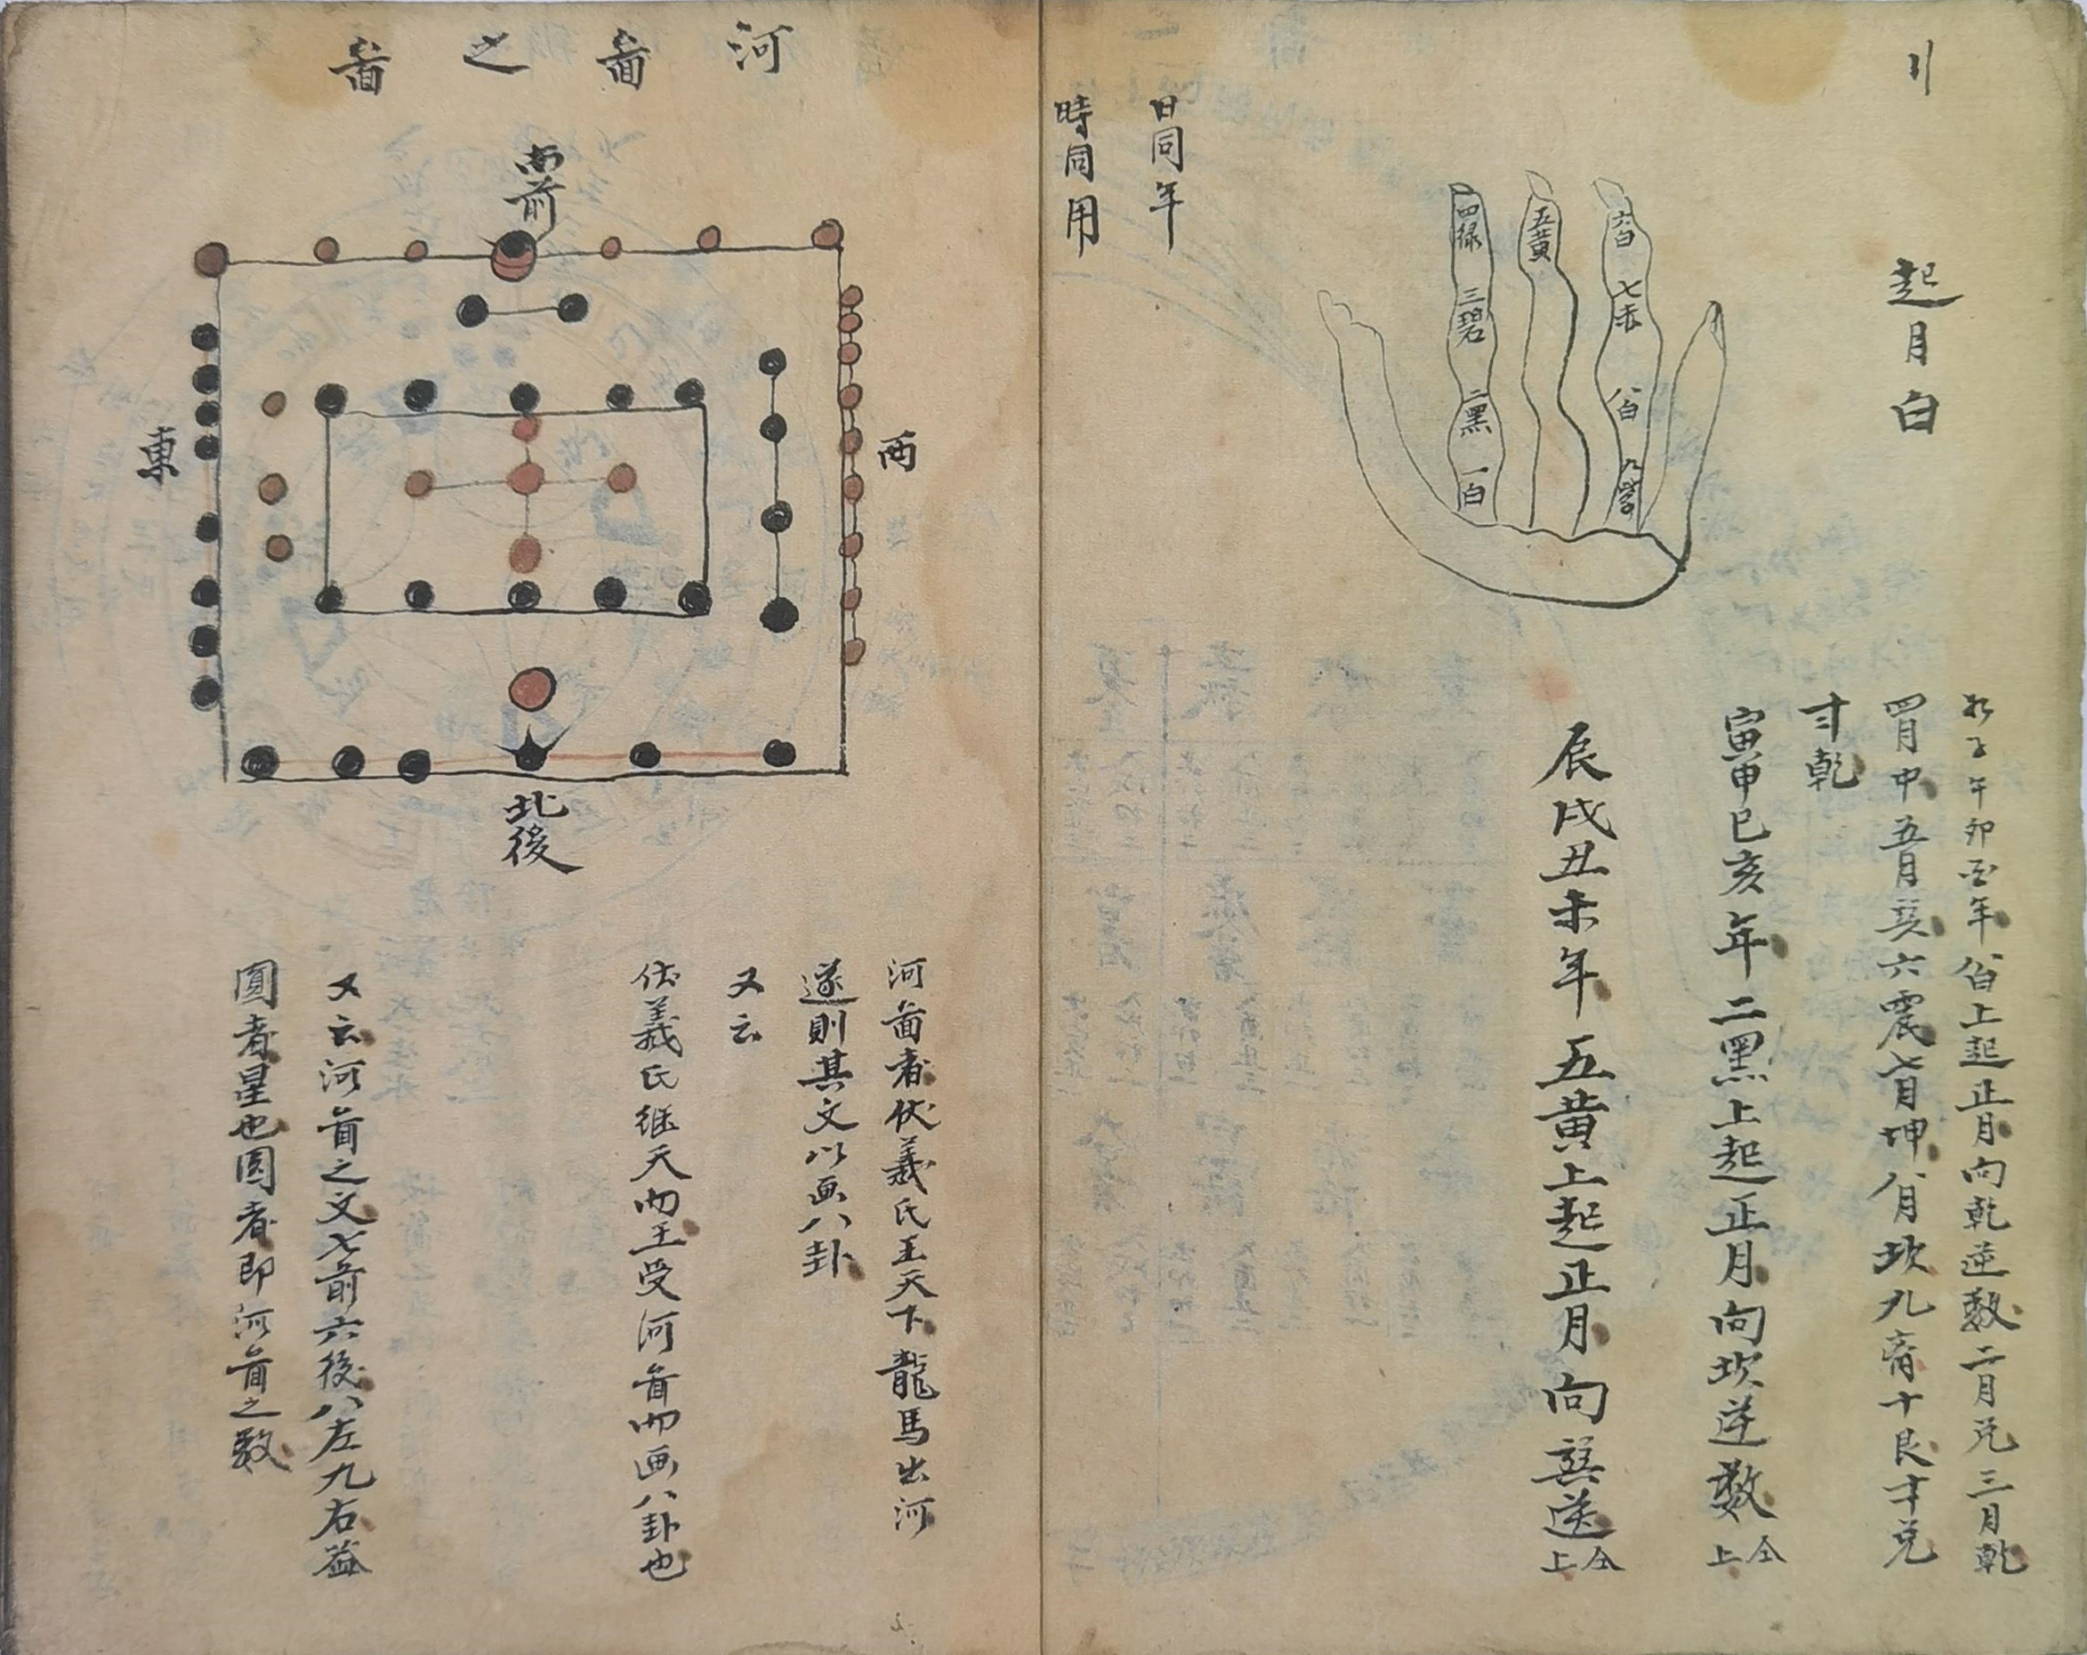 起月白
四緑
三碧
二黑
一白
五黄
六白
七赤
八白
九紫
日同年
時同用
子午卯酉年八白上起正月向乾逆數二月兑三月乾
四月中五月巽六震七月坤八月坎九离十艮十兑
十乾
寅申巳亥年二黑上起正月向坎逆數仝上
辰戌丑未年五黄上起正月向巽逆仝上
河啚之啚
南前
東
西
北後
河啚者伏羲氏王天下龍馬出河
遂則其文以画八卦
又云
伏羲氏继天而王受河啚而画八卦也
又云河啚之文七前六後八左九右益
圓者星也圓者即河啚之數